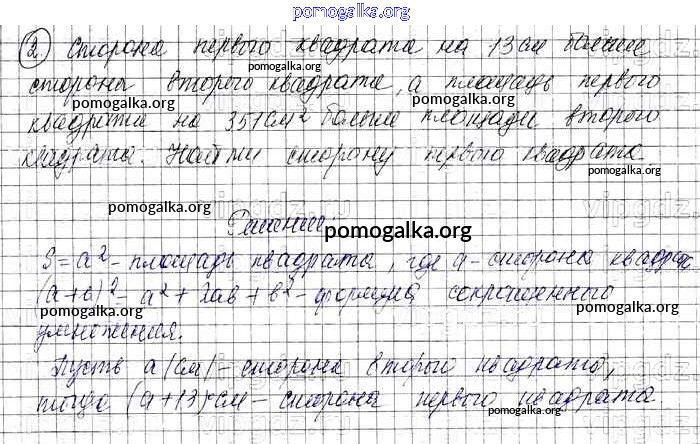 pomogalka.org
2. Сторона первого квадрата на 13 см больше
стороны второго квадрата, а площадь первого
pomogalka.org pomogalka.org
квадрата на 351 см² больше площади второго
квадрата. Найти сторону первого квадрата.
pomogalka.org
pomogalka.org
Решение:
pomogalka.org
S = a² - площадь квадрата, где a - сторона квадрата
(a+b)² = a² + 2ab + b² - формула сокращенного
pomogalka.org pomogalka.org
умножения.
Пусть a (см) - сторона второго квадрата,
pomogalka.org
тогда (a+13) см - сторона первого квадрата.
pomogalka.org